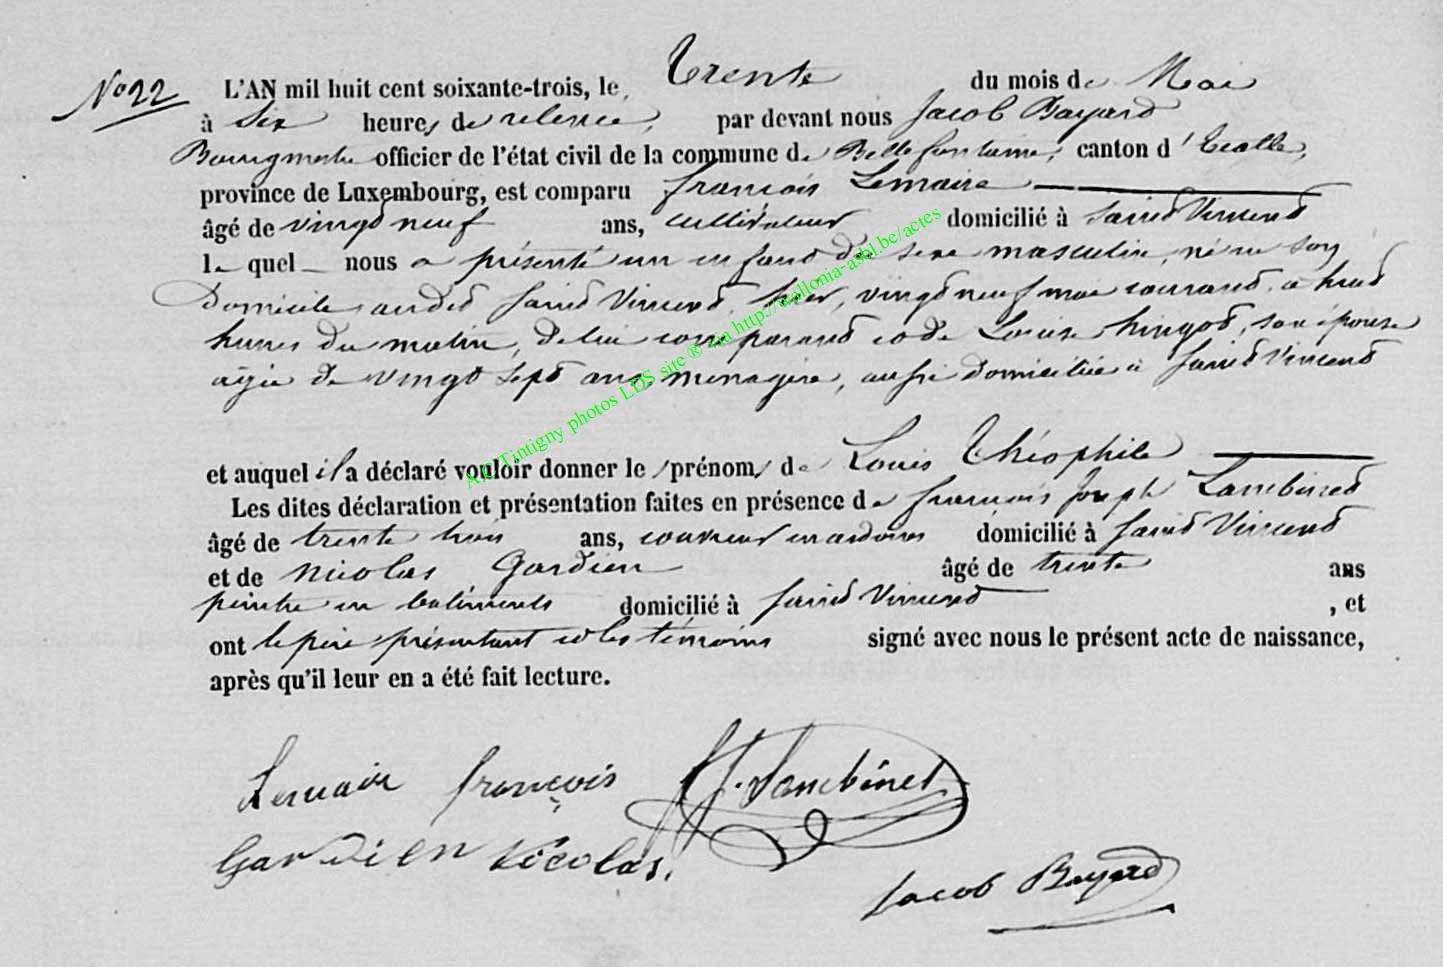 No 22
L'AN mil huit cent soixante-trois, le Trente du mois de Mai
à Six heures de relevée, par devant nous Jacob Bayard
Bourgmestre officier de l'état civil de la commune de Bellefontaine, canton d'Etalle,
province de Luxembourg, est comparu françois Lemaire
âgé de vingt neuf ans, cultivateur domicilié à Saint Vincent
lequel nous a présenté un enfant du sexe masculin, né en son
Domicile audit Saint Vincent, hier, vingt neuf mai courant, à huit
heures du matin, de lui comparant et de Louise hingot, son épouse
agée de vingt sept ans, menagère, aussi domiciliée à Saint Vincent
et auquel il a déclaré vouloir donner les prénoms de Louis Théophile
Les dites déclaration et présentation faites en présence de françois Joseph Lambinet
âgé de trente trois ans, couvreur en ardoises domicilié à Saint Vincent
et de Nicolas Gardien âgé de trente ans
peintre en batiments domicilié à Saint Vincent , et
ont le père présentant et les témoins signé avec nous le présent acte de naissance,
après qu'il leur en a été fait lecture.
Lemaire françois fJ. Lambinet
Gardien Nicolas.
Jacob Bayard
A.E. Tintigny photos LDS site ® via http://wallonia-asbl.be/actes